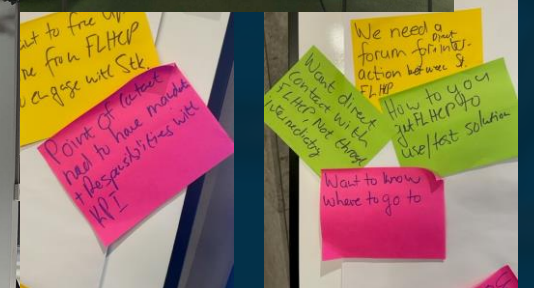 to free up
from FLHCP
engage with Stk.
Point of contact
had to have mandate
+ Responsibilities with
KPI
We need a
Direct
forum for inter-
action between St.
FLHP
Want direct
contact with
FLHCP, Not through
intermediary
How to you
get FLHCP to
use/test solution
Want to know
where to go to